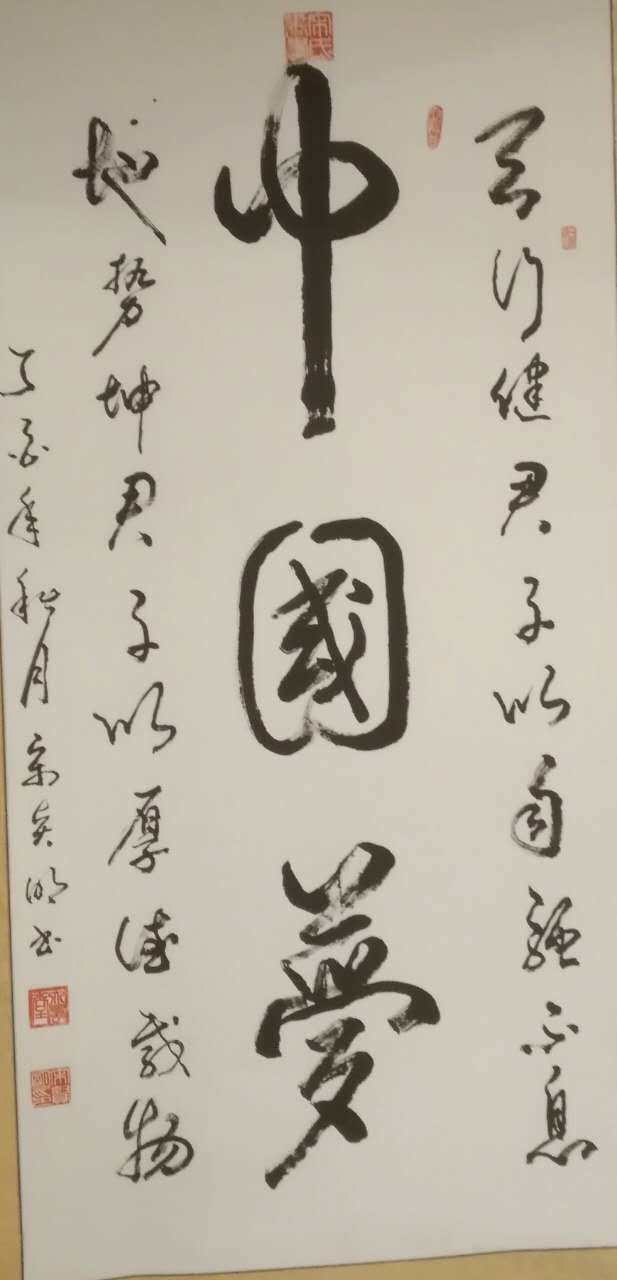 天行健君子以自强不息
中國夢
地势坤君子以厚德载物
丁酉年秋月宋明书